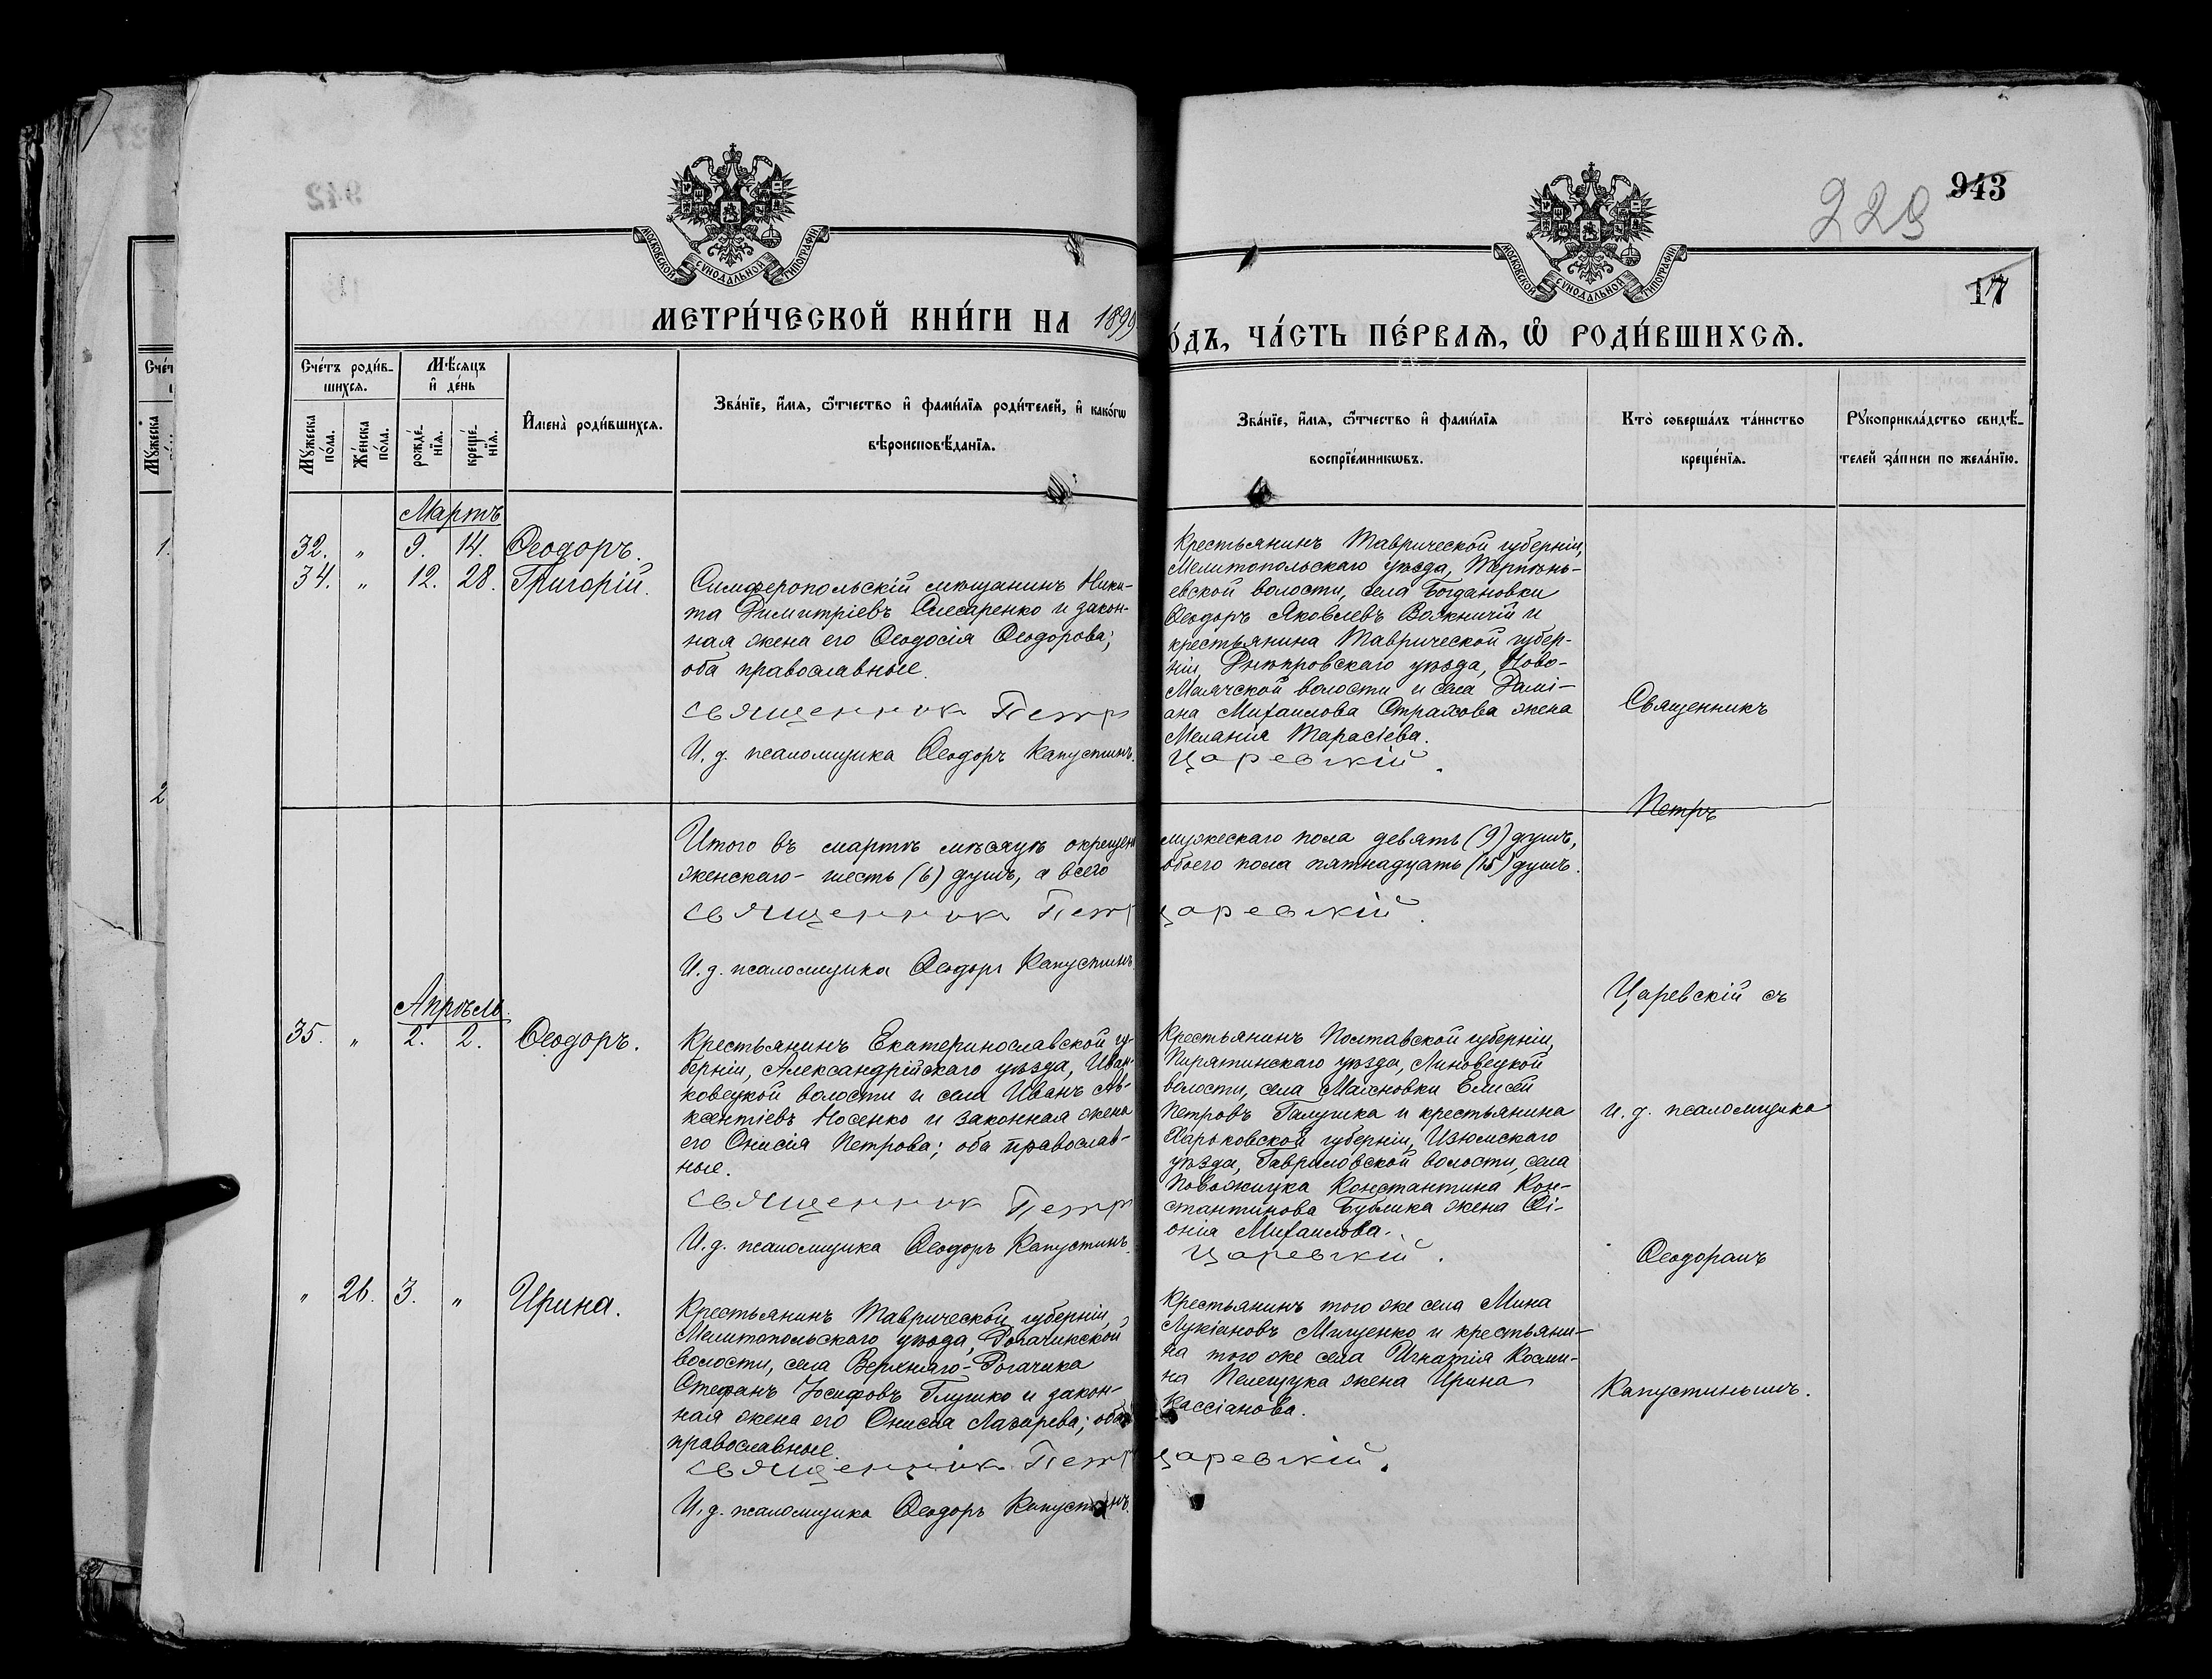 942
943
229
17
МОСКОВСКОЙ СѴНОДАЛЬНОЙ ТИПОГРАФІИ
МОСКОВСКОЙ СѴНОДАЛЬНОЙ ТИПОГРАФІИ
МЕТРИ́ЧЕСКОЙ КНИ́ГИ НА 1899
О́ДЪ, ЧА́СТЬ ПЕ́РВАѦ, Ѡ҆ РОДИ́ВШИХСѦ.
Сче́тъ роди́в-
шихсѧ.
Мѣ́сѧцъ
и҆ де́нь
Мꙋ́жеска
по́ла.
Же́нска
по́ла.
рожде́-
нїѧ.
креще́-
нїѧ.
И҆мена̀ роди́вшихсѧ.
Зва́нїе, и҆́мѧ, ѻ҆́тчество и҆ фами́лїѧ роди́телей, и҆ како́гѡ
вѣроисповѣ́данїѧ.
Зва́нїе, и҆́мѧ, ѻ҆́тчество и҆ фами́лїѧ
воспрїе́мникѡвъ.
Кто̀ соверша́лъ та́инство
креще́нїѧ.
Рꙋкоприкла́дство свидѣ́-
телей за́писи по жела́нїю.
Мартъ
32. „ 9. 14. Ѳеодоръ.
34. „ 12. 28. Григорій.
Симферопольскій мѣщанинъ Ники-
та Димитріевъ Слесаренко и закон-
ная жена его Ѳеодосія Ѳеодорова;
оба православные.
Священник Петр
И. д. псаломщика Ѳеодоръ Капустинъ.
Крестьянинъ Таврической губерніи,
Мелитопольскаго уѣзда, Терпѣнь-
евской волости, села Богдановки
Ѳеодоръ Яковлевъ и
крестьянина Таврической губер-
ніи, Днѣпровскаго уѣзда, Ново-
Маячской волости и села Дамі-
ана Михаилова Страхова жена
Меланія Тарасіева.
Царевскій.
Священникъ
Петръ
Царевскій съ
и. д. псаломщика
Ѳеодоромъ
Капустинымъ.
Итого въ мартѣ мѣсяцѣ окрещено
женскаго - шесть (6) душъ, а всего
Священник Петр
И. д. псаломщика Ѳеодоръ Капустинъ
мужескаго пола девять (9) душъ,
обоего пола пятнадцать (15) душъ.
Царевскій.
Апрѣль.
35. „ 2. 2. Ѳеодоръ.
Крестьянинъ Екатеринославской гу-
берніи, Александрійскаго уѣзда, Иван-
ковецкой волости и села Иванъ Ав-
ксентіевъ Носенко и законная жена
его Онисія Петрова; оба православ-
ные.
Священник Петр
И. д. псаломщика Ѳеодоръ Капустинъ.
Крестьянинъ Полтавской губерніи,
Пирятинскаго уѣзда, Линовецкой
волости, села Махновки Елисей
Петровъ Галушка и крестьянина
Харьковской губерніи, Изюмскаго
уѣзда, Гавриловской волости, села
Константина Кон-
стантинова Бублика жена Ѳі-
онія Михаилова.
Царевскій.
„ 26. 3. „ Ирина.
Крестьянинъ Таврической губерніи,
Мелитопольскаго уѣзда, Рогачикской
волости, села Верхняго-Рогачика
Стефанъ Іосифовъ Глушко и закон-
ная жена его Онисія Лазарева; оба
православные.
Священник Петр
И. д. псаломщика Ѳеодоръ Капустинъ.
Крестьянинъ того же села Мина
Лукіановъ Мищенко и крестьяни-
на того же села Игнатія Косми-
на Пелещука жена Ирина
Кассіанова.
Царевскій.